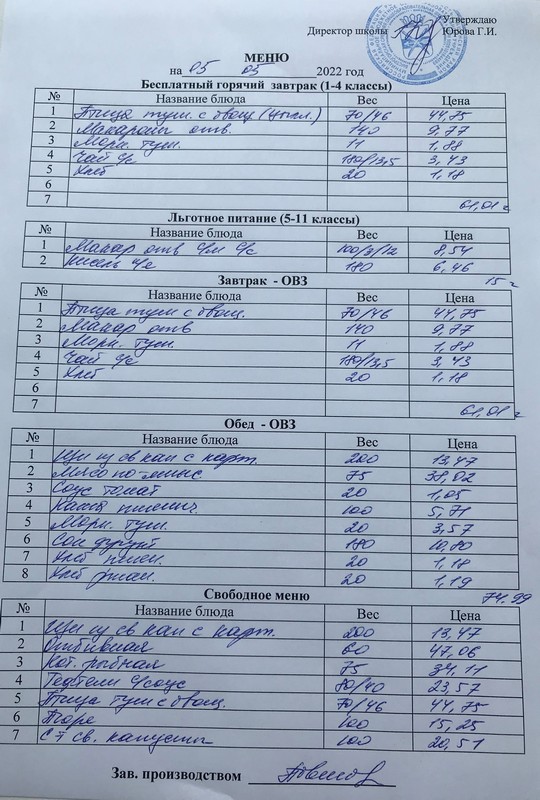 Утверждаю
Директор школы Юрова Г.И.
МЕНЮ
на 05 05 2022 год
Бесплатный горячий завтрак (1-4 классы)
№ Название блюда Вес Цена
1 Птица туш. с овощ 70/46 44,75
2 Макароны отв. 140 9,77
3 Морк. туш. 11 1,88
4 Чай с/с 180/13,5 3,43
5 Хлеб 20 1,18
6
7 61,01
Льготное питание (5-11 классы)
№ Название блюда Вес Цена
1 Макар отв с/м с/с 100/3/12 8,54
2 Кисель 180 6,46
15
Завтрак - ОВЗ
№ Название блюда Вес Цена
1 Птица туш с овощ. 70/46 44,75
2 Макар отв 140 9,77
3 Морк. туш. 11 1,88
4 Чай с/с 180/13,5 3,43
5 Хлеб 20 1,18
6
7 61,01
Обед - ОВЗ
№ Название блюда Вес Цена
1 Щи из св кап с карт. 200 13,47
2 Мясо по- 75 38,02
3 Соус томат 20 1,05
4 Каша пшенич 100 5,71
5 Морк. туш. 20 3,57
6 Сок фрукт 180 10,80
7 Хлеб пшен. 20 1,18
8 Хлеб ржан. 20 1,19
74.99
Свободное меню
№ Название блюда Вес Цена
1 Щи из св кап с карт. 200 13,47
2 Отбивная 60 47,06
3 Кот. рыбная 75 34,11
4 Тефтели с/соус 80/40 23,57
5 Птица туш с овощ. 70/46 44,75
6 Пюре 100 15,25
7 С-т св. капусты 100 20,51
Зав. производством